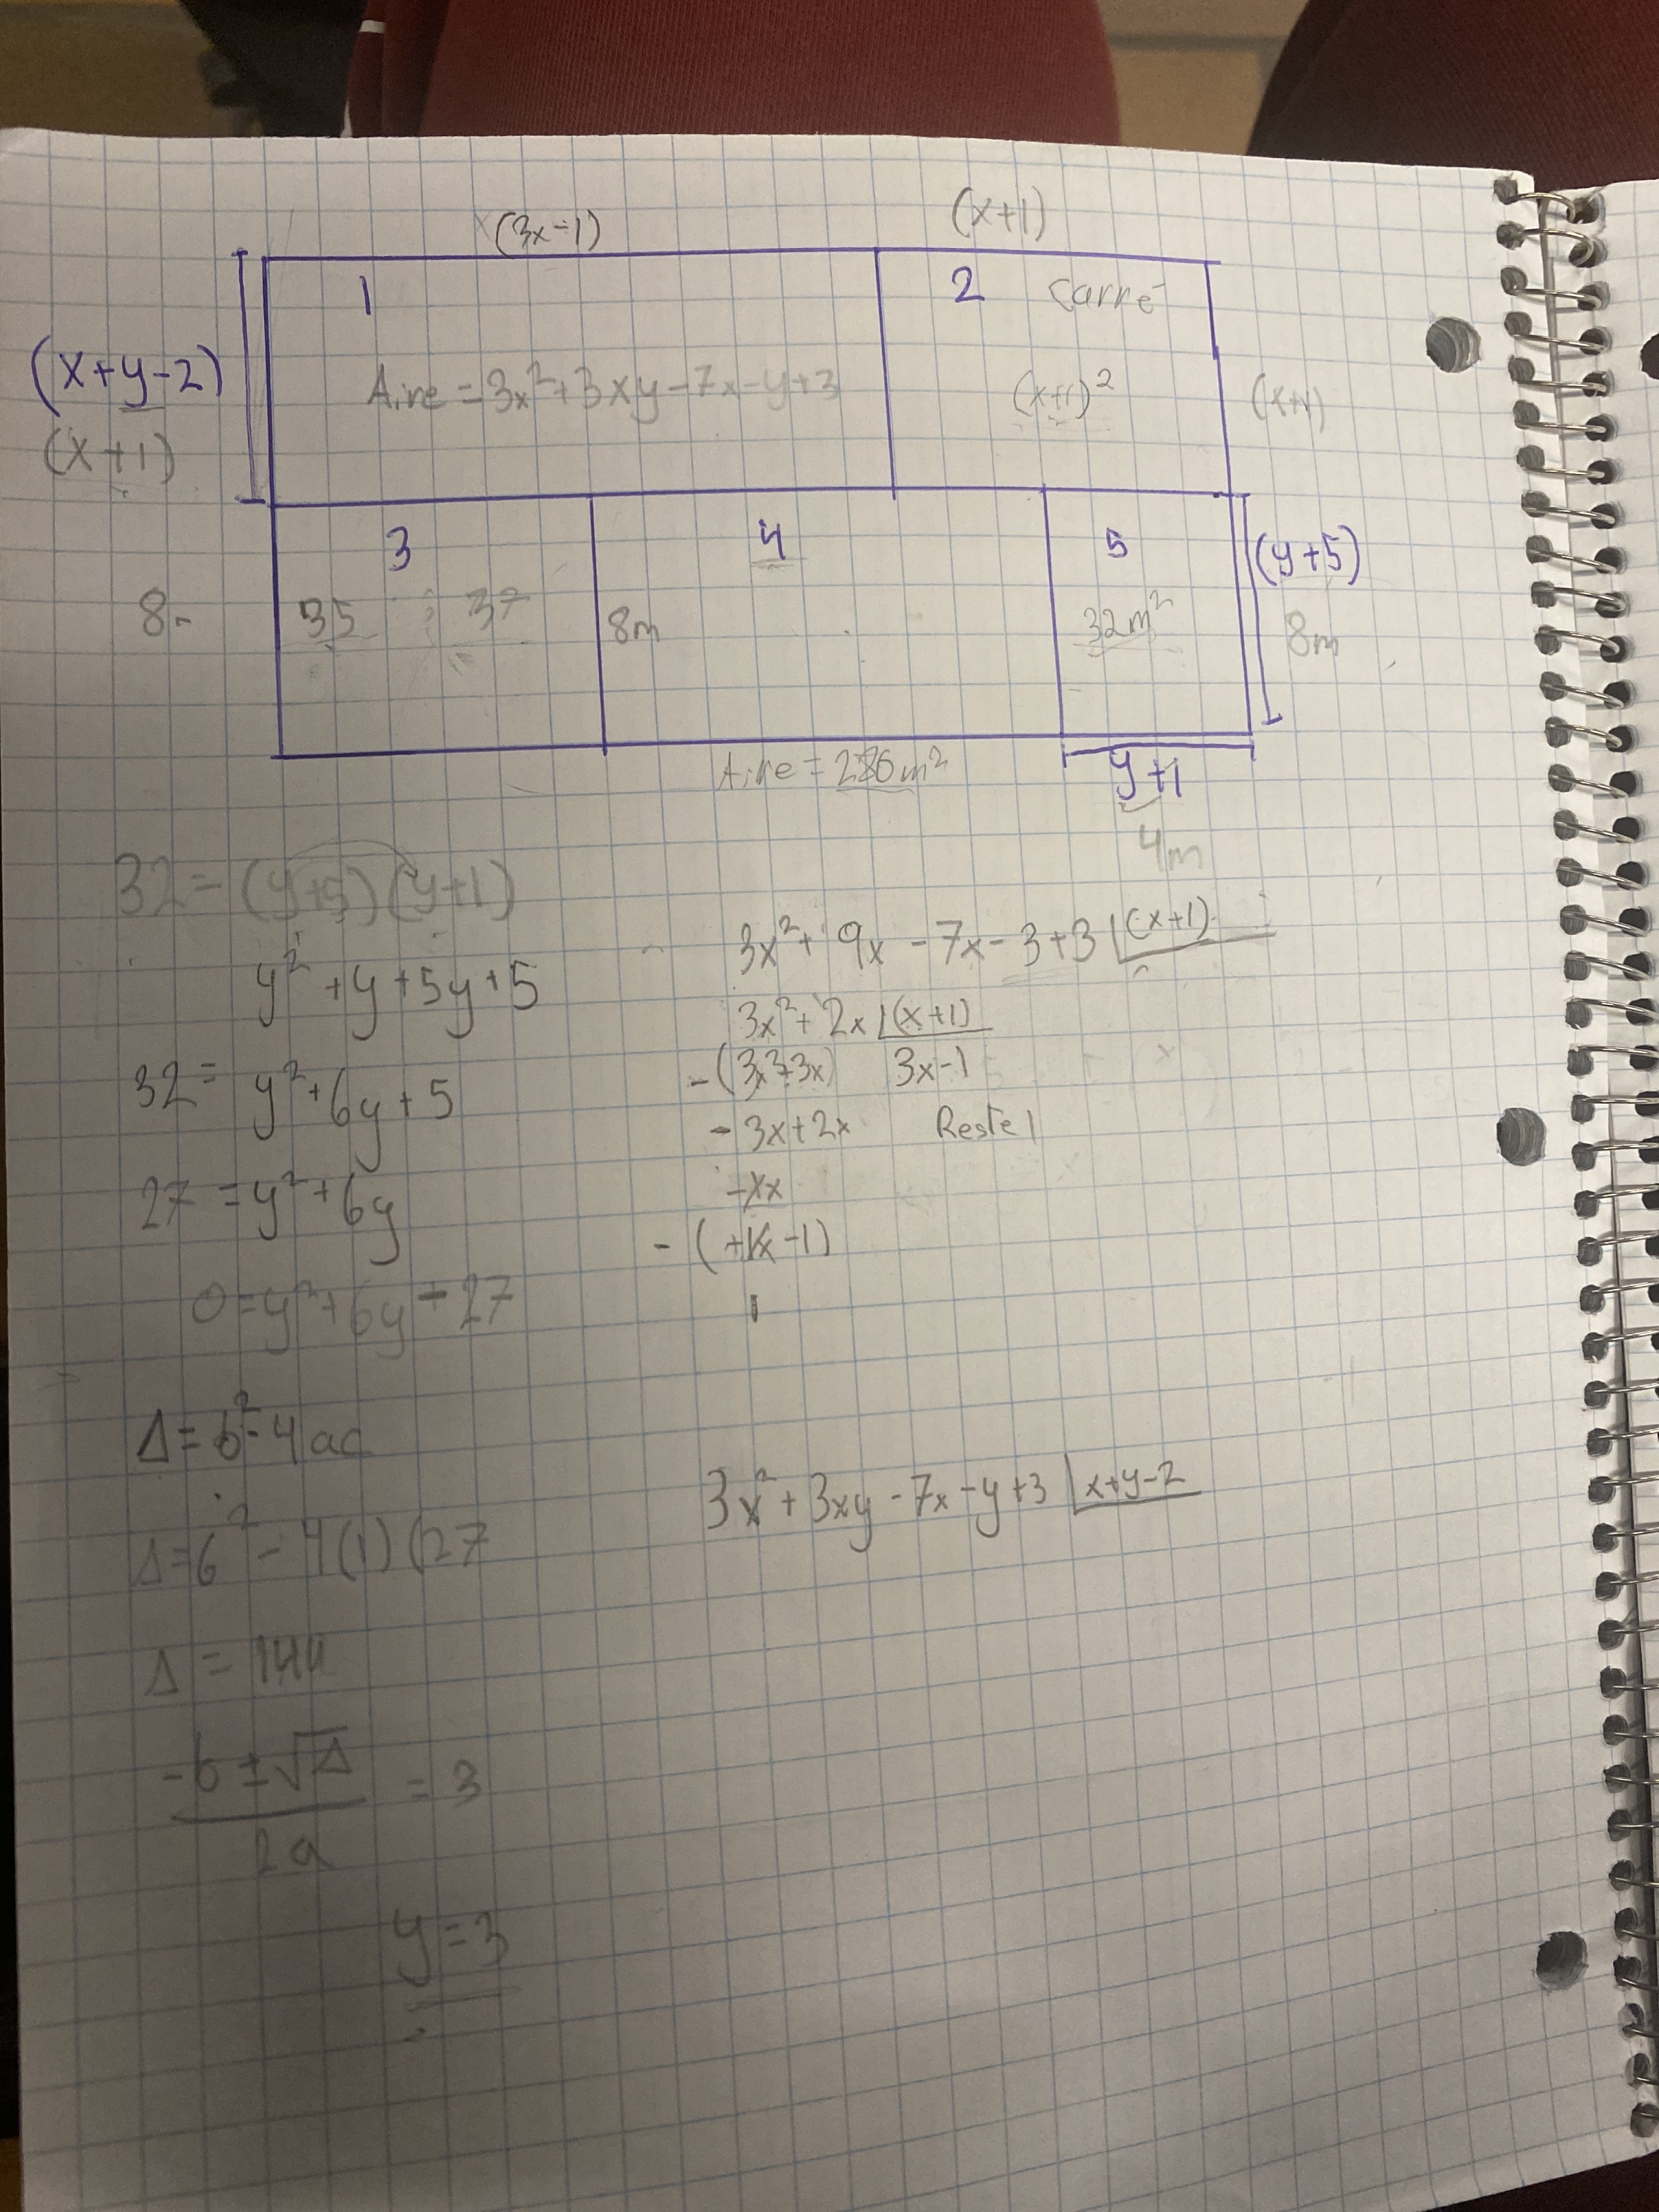 (3x-1) (x+1)
1 2 carré
(x+y-2) Aire = 3x²+3xy-7x-y+3 (x+1)²
(x+1)
3 4 5 (y+5)
8m 35 ; 37 8m 32m² 8m
Aire = m² y+1
4m
32 = (y+5)(y+1)
y²+y+5y+5
32 = y²+6y+5
27 = y²+6y
0=y²+6y-27
Δ=b²-4ac
Δ=6²-4(1)(27
Δ = 144
-b±√Δ
= 3
2a
y=3
3x²+9x-7x-3+3 (x+1)
3x²+2x (x+1)
-(3x²+3x) 3x-1
-3x+2x Reste 1
-1x
-(+1x-1)
1
3x²+3xy-7x-y+3 x+y-2